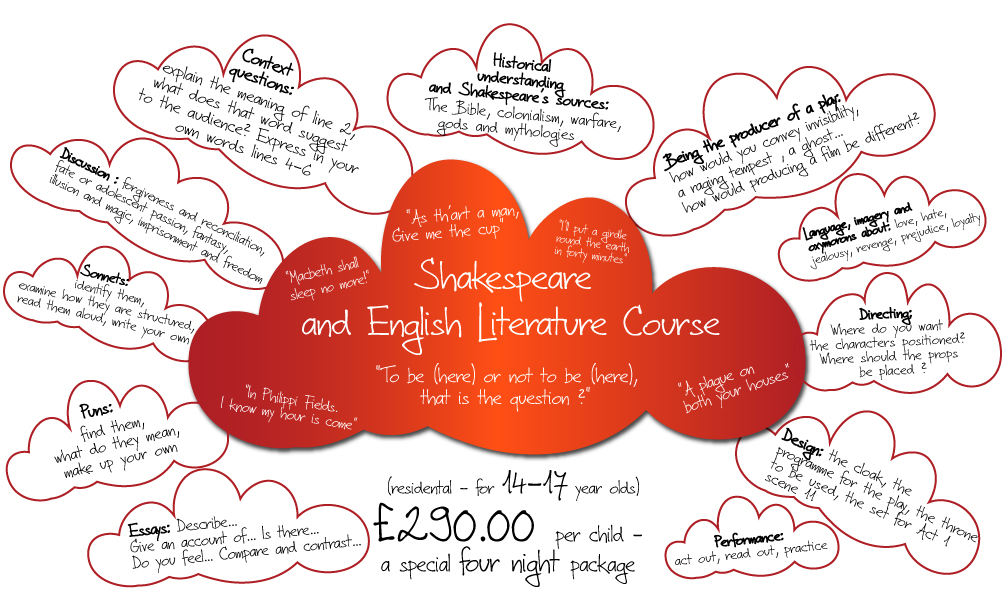 Context
questions:
explain the meaning of line 2,
what does that word suggest
to the audience? Express in your
own words lines 4-6
Historical
understanding
and Shakespeare's sources:
The Bible, colonialism, warfare,
gods and mythologies
Being the producer of a play:
how would you convey invisibility,
a raging tempest , a ghost...
how would producing a film be different?
Discussion : forgiveness and reconciliation,
fate or adolescent passion, fantasy,
illusion and magic, imprisonment and freedom
Language, imagery and
oxymorons about: love, hate,
jealousy, revenge, prejudice, loyalty
Sonnets:
identify them,
examine how they are structured,
read them aloud, write your own
Directing:
Where do you want
the characters positioned?
Where should the props
be placed ?
"As th'art a man,
Give me the cup"
"I'll put a girdle
round the earth
in forty minutes"
"Macbeth shall
sleep no more!"
Shakespeare
and English Literature Course
"To be (here) or not to be (here),
that is the question ?"
"In Philippi Fields.
I know my hour is come"
"A plague on
both your houses"
Puns:
find them,
what do they mean,
make up your own
Design: the cloak, the
programme for the play, the throne
to be used, the set for Act 1
scene 11
Essays: Describe...
Give an account of... Is there...
Do you feel... Compare and contrast...
Performance:
act out, read out, practice
(residental - for 14-17 year olds)
£290.00 per child -
a special four night package